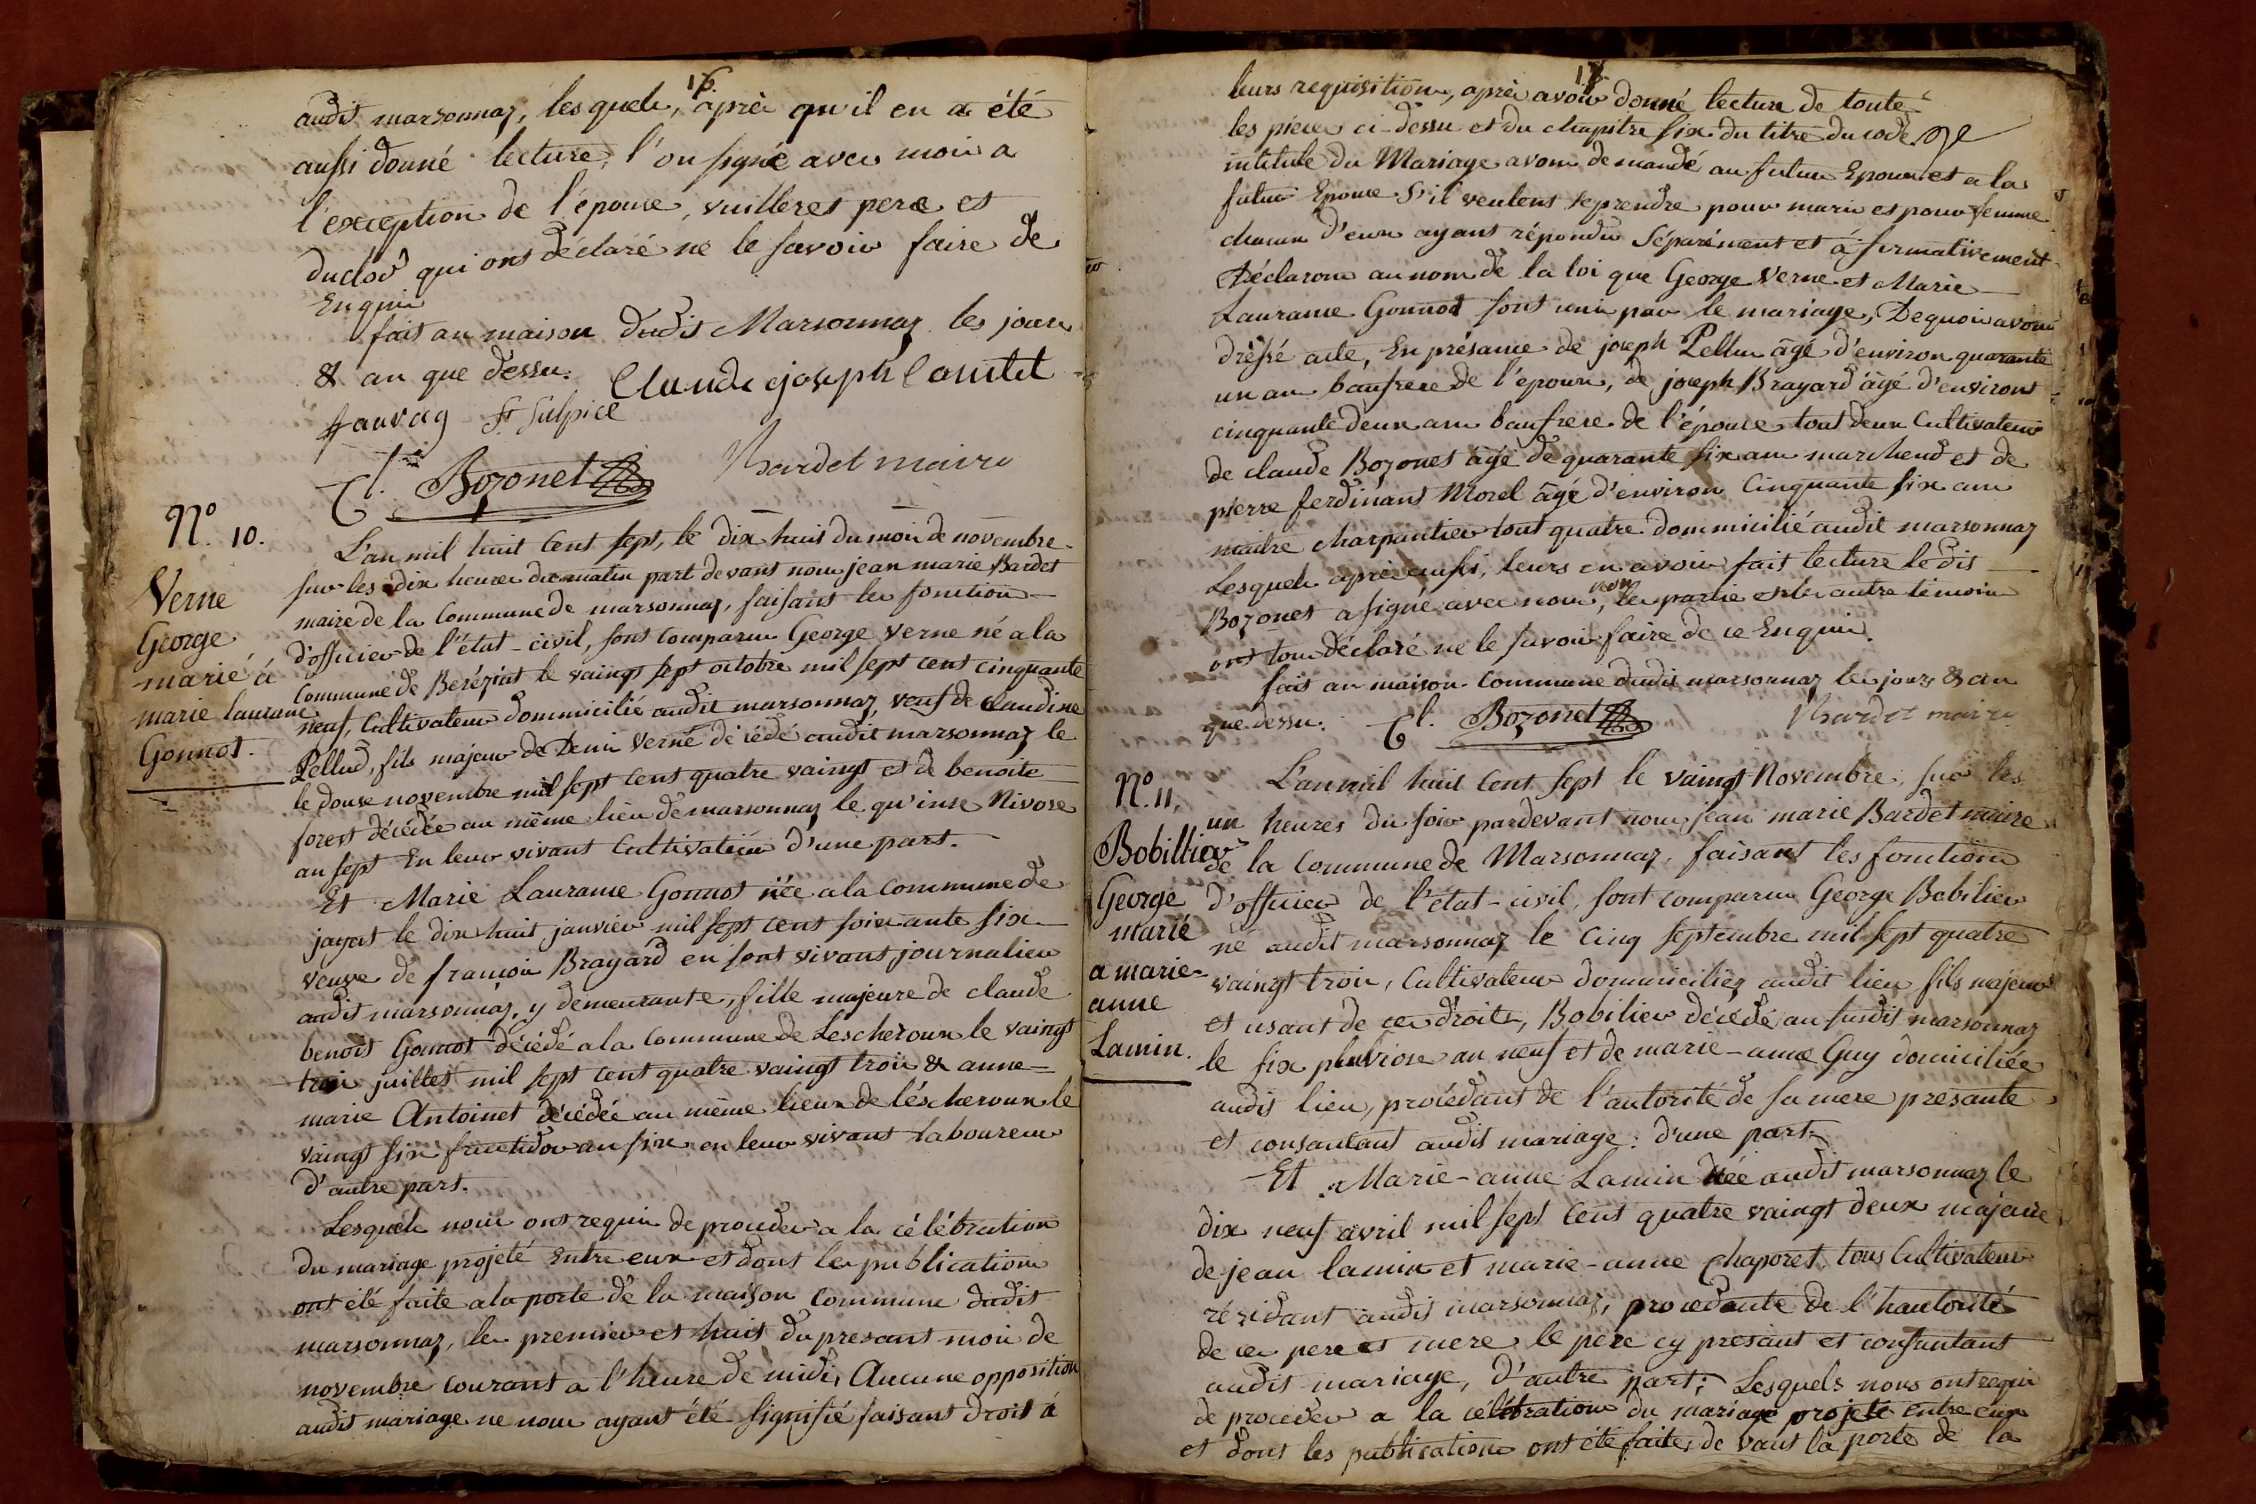 16.
audit marsonnaz, lesquels, après qu'il en a été
aussi donné lecture, l'on signé avec moi a
l'exception de l'épouse, vuilleret pere et
duclod qui ont déclaré ne le savoir faire de
Enquis
fait au maison dudit Marsonnaz les jours
& an que dessu. Claude joseph
Sauvag St Sulpice
Cl. Bozonet Bardet maire
N° 10.
Verne
George
marié à
marie laurance
Gonnot.
L'an mil huit Cent sept, le dix huit du mois de novembre
sur les dix heures du matin part devant nous jean marie Bardet
maire de la Commune de marsonnaz, faisant les fonctions
d'officier de l'état-civil, sont comparus George Verne né a la
Commune de Beréziat le vaingt sept octobre mil sept cent cinquante
neuf, Cultivateur dommicilié audit marsonnaz, veuf de Claudine
Pellud, fils majeur de Denis Verne décédé audit marsonnaz le
le douse novembre mil sept cent quatre vaingt et de benoite
forest décédée au même lieu de marsonnaz le qu'inse Nivose
an sept En leur vivant Cultivateurs d'une part.
Et Marie Laurance Gonnot née a la Commune de
jayat le dix huit janvier mil sept cent soixante six
veuve de francois Brayard en sont vivant journalier
audit marsonnaz, y demeurante, fille majeure de claude
benoit Gonnot décédé a la Commune de Lescheroux le vaingt
trois juillet mil sept cent quatre vaingt trois & anne
marie Antoinet décédée au même lieux de léscheroux le
vaingt six fructidor an six en leur vivant laboureur
d'autre part.
Lesquels nous ont requis de proceder a la célébration
du mariage projeté Entre eux et dont les publications
ont été faite a la porte de la maison Commune dudit
marsonnaz, les premier et huit du presant mois de
novembre courant a l'heure de midi, Aucune opposition
audit mariage ne nous ayant été signifié faisant droit à
17.
leurs requisitions, après avoir donné lecture de toute
les pieces ci-dessu et du chapitre six du titre du code
intitulé du Mariage avons demandé au futur Epoux et a la
future Epouse S'il veulent se prendre pour marie et pour femme
chacun d'eux ayant répondu Séparément et afirmativement
Déclarons au nom de la loi que George Verne et Marie
Laurance Gonnot sont unis par le mariage, De quoi avons
dréssé acte, En présance de joseph Pellu âgé d'environ quarante
un an baufrere de l'époux, de joseph Brayard âgé d'environt
cinquante deux ans baufrere de l'épouse tout deux Cultivateurs
de claude Bozonet âgé de quarante six ans marchend et de
pierre ferdinant Morel âgé d'environ Cinquante six ans
maître charpantier tout quatre dommicilié audit marsonnaz
Lesquels après aussi, leurs en avoir fait lecture ledit
Bozonet a signé avec nous, non les partie et les autre témoins
ont tous déclaré ne le savoir faire de ce Enquis.
fait au maison Commune dudit marsonnaz les jours & an
que dessu. Cl. Bozonet Bardet maire
N° 11.
Bobillier
George
marié
a marie
anne
Lamin.
L'an mil huit Cent Sept le vaingt Novembre, sur les
un heures du soir pardevant nous jean marie Bardet maire
de la Commune de Marsonnaz, faisant les fonctions
d'officier de l'état-civil, sont comparus George Bobilier
né audit marsonnaz le Cinq Septembre mil sept quatre
vaingt trois, Cultivateur domiciliéz audit lieu fils majeur
et usant de ces droits, Bobilier décédé au susdit marsonnaz
le six pluviose an neuf et de marie-anne Guy domiciliée
audit lieu, procédant de l'autorité de sa mere presante
et consantant audit mariage: d'une part.
Et Marie-anne Lamin née audit marsonnaz le
dix neuf avril mil sept Cent quatre vaingt deux majeure
de jean lamin et marie-anne Chaporet tous Cultivateurs
résidant audit marsonnaz, procedante de l'hautorité
de ces pere et mere le père cy presant et consantant
audit mariage, d'autre part; Lesquels nous ont requis
de proceder a la célébration du mariage projeté entre eux
et dont les publications ont été faites de vant la porte de la